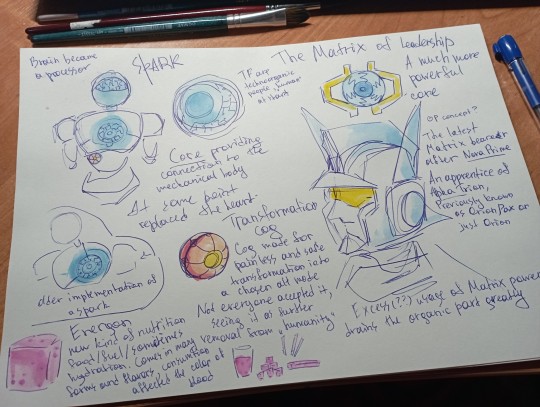 Brain became
a processor
SPARK
TF are
technoorganic
people, human
at start
The Matrix of Leadership
A much more
powerful
core
Core providing
connection to the
mechanical body
At some point
replaced the heart.
older implementation of
a spark
Transformation
cog
Cog made for
painless and safe
transformation into
a chosen alt mode
Not everyone accepted it,
seeing it as further
removal from "humanity"
OP concept?
The latest
Matrix bearer
after Nova Prime
An apprentice of
Alpha Trion,
Previously known
as Orion Pax or
just Orion
Excess(??) usage of Matrix power
drains the organic part greatly
Energon
new kind of nutrition
food/fuel/sometimes
hydration. Comes in many
forms and flavors, consumption
affected the color of
blood